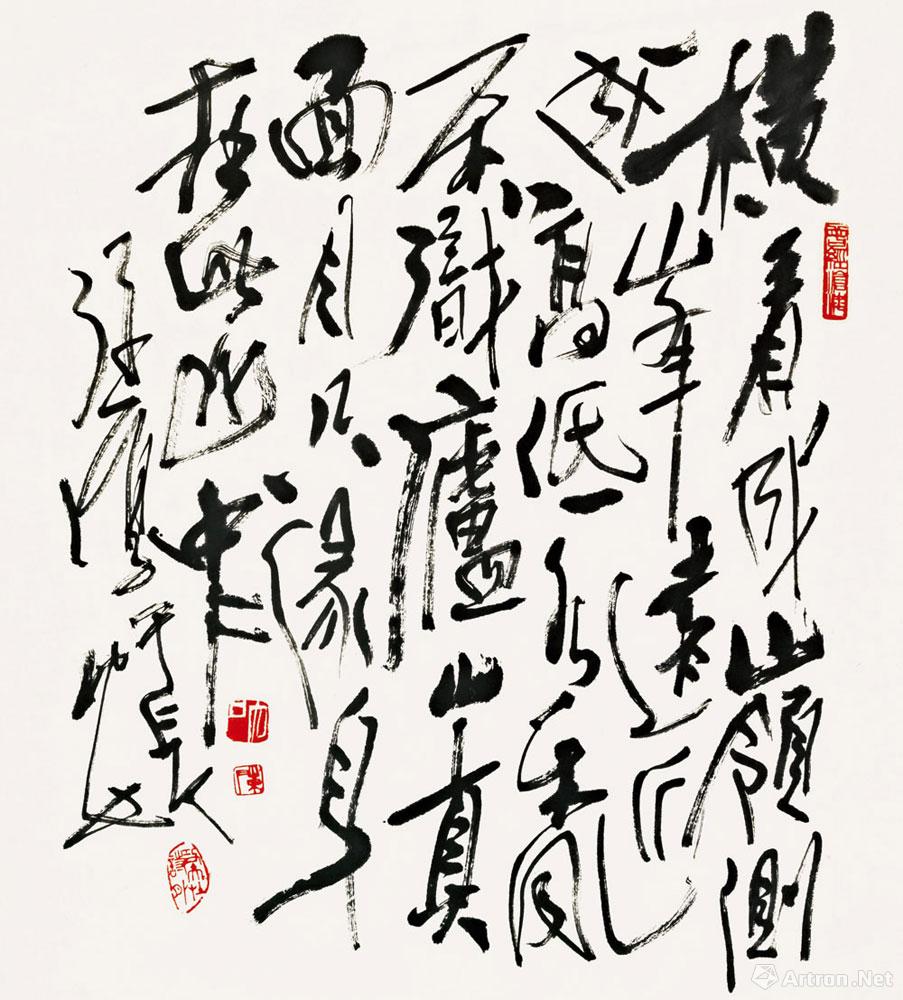 橫看成嶺側
成峰遠近
高低各不同
不識廬山真
面目只緣身
在此山中
Artron.Net